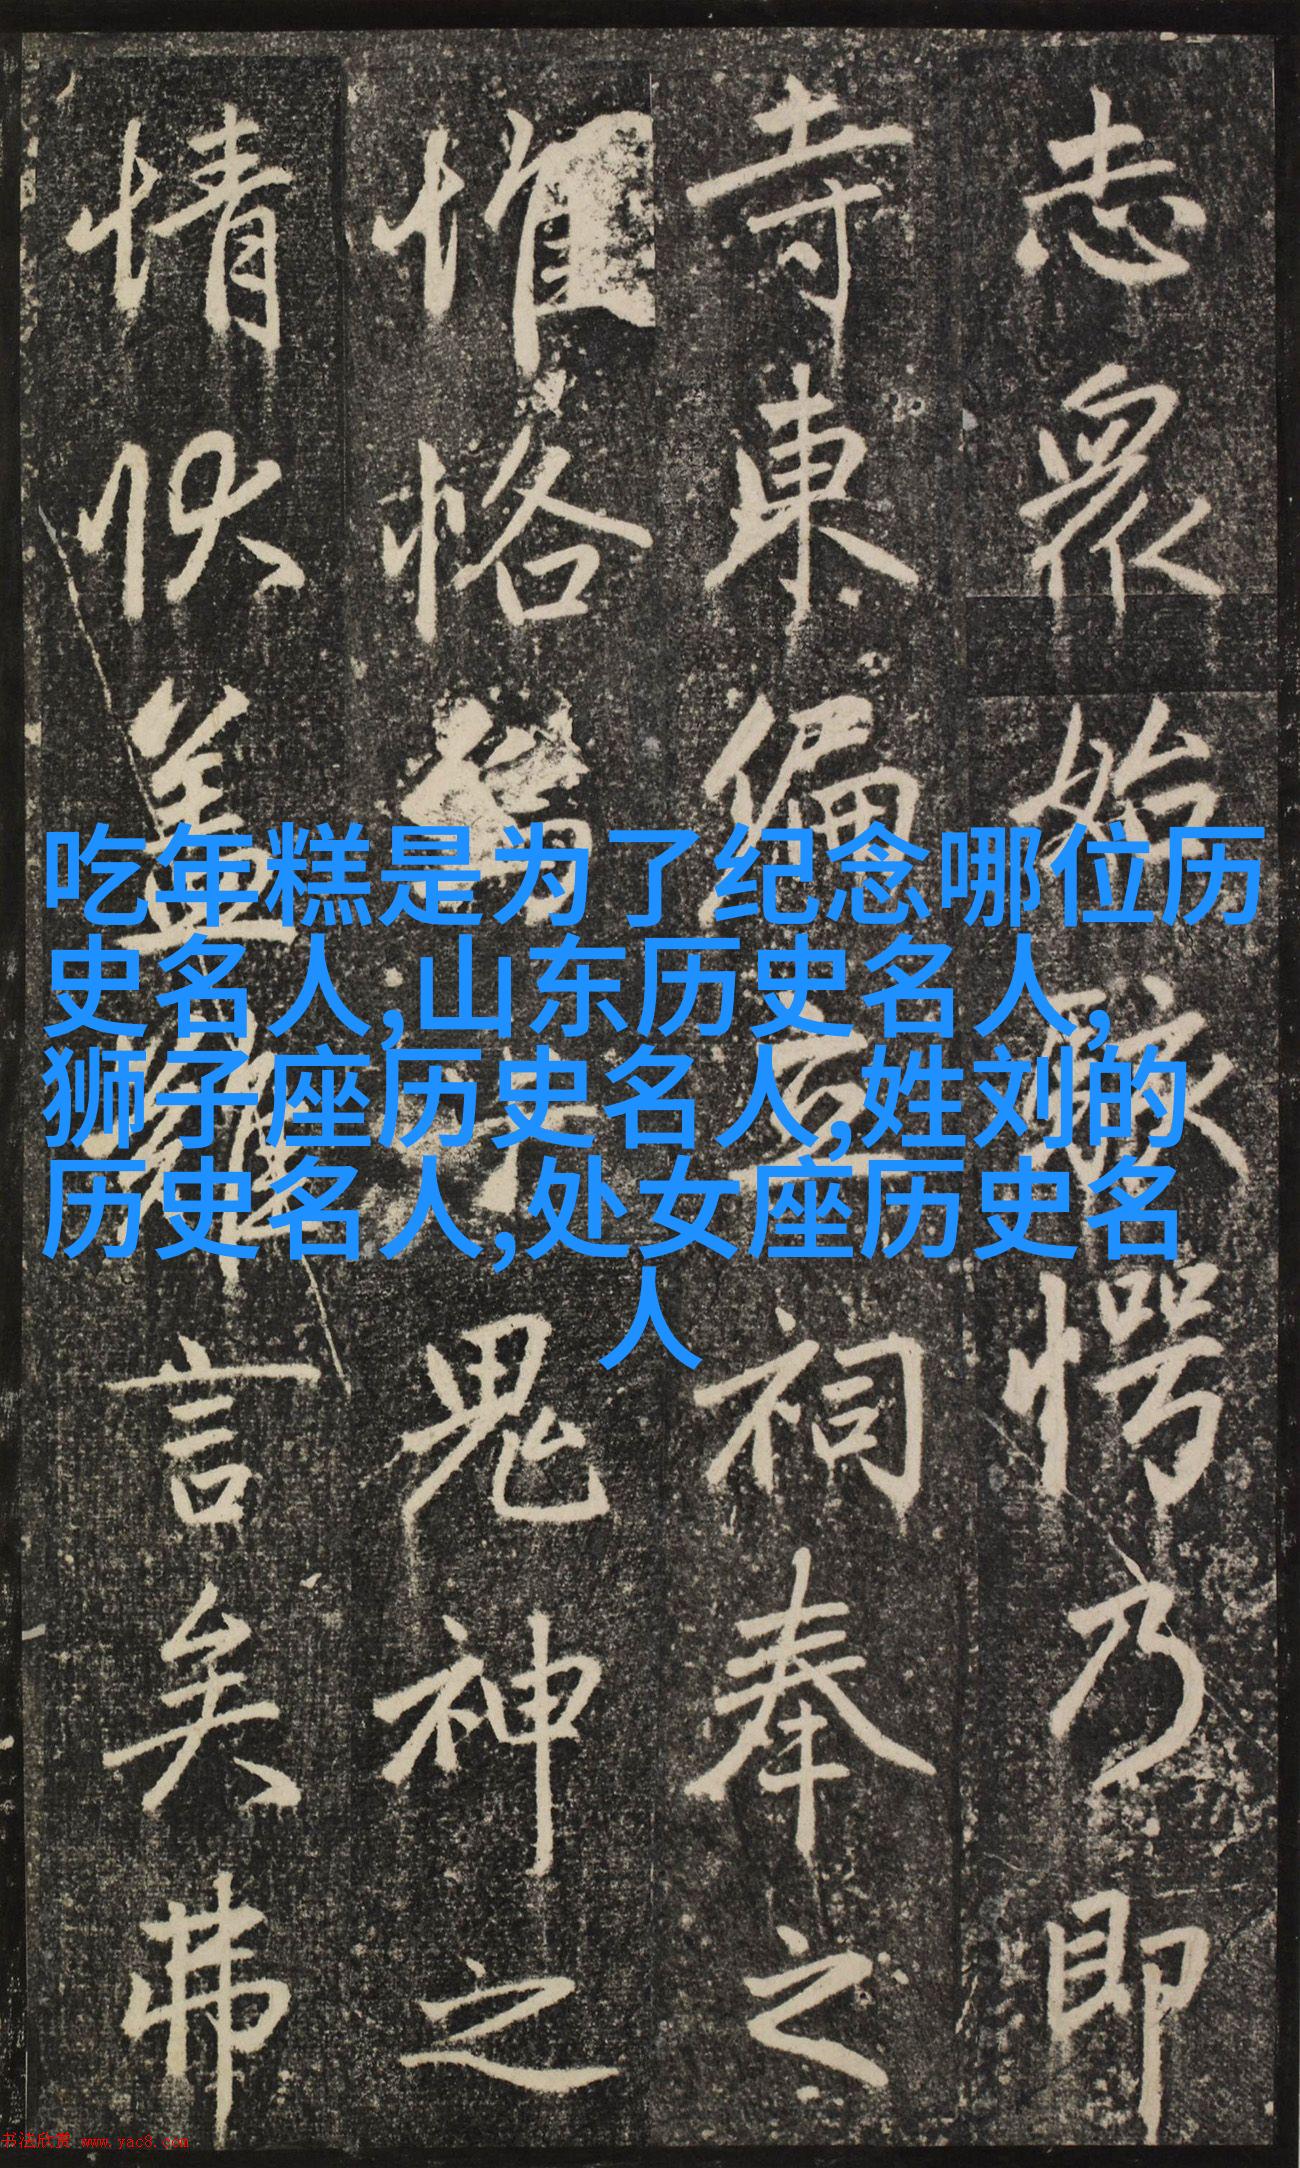 志眾始駭愕乃即
寺東偏立祠奉之
惟恪鬼神之
情狀蓋難言矣弗
吃年糕是为了纪念哪位历
史名人,山东历史名人,
狮子座历史名人,姓刘的
历史名人,处女座历史名
人
书法欣赏 www.yac8.com